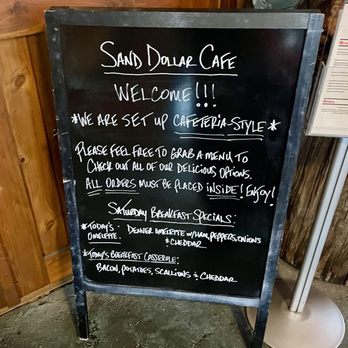 SAND DOLLAR CAFE
WELCOME!!!
*WE ARE SET UP CAFETERIA-STYLE*
PLEASE FEEL FREE TO GRAB A MENU TO
CHECK OUT ALL OF OUR DELICIOUS OPTIONS.
ALL ORDERS MUST BE PLACED INSIDE! ENJOY!
SATURDAY BREAKFAST SPECIALS:
*TODAY'S OMELETTE: DENVER OMELETTE W/ HAM, PEPPERS, ONIONS
& CHEDDAR
*TODAY'S BREAKFAST CASSEROLE:
BACON, POTATOES, SCALLIONS & CHEDDAR